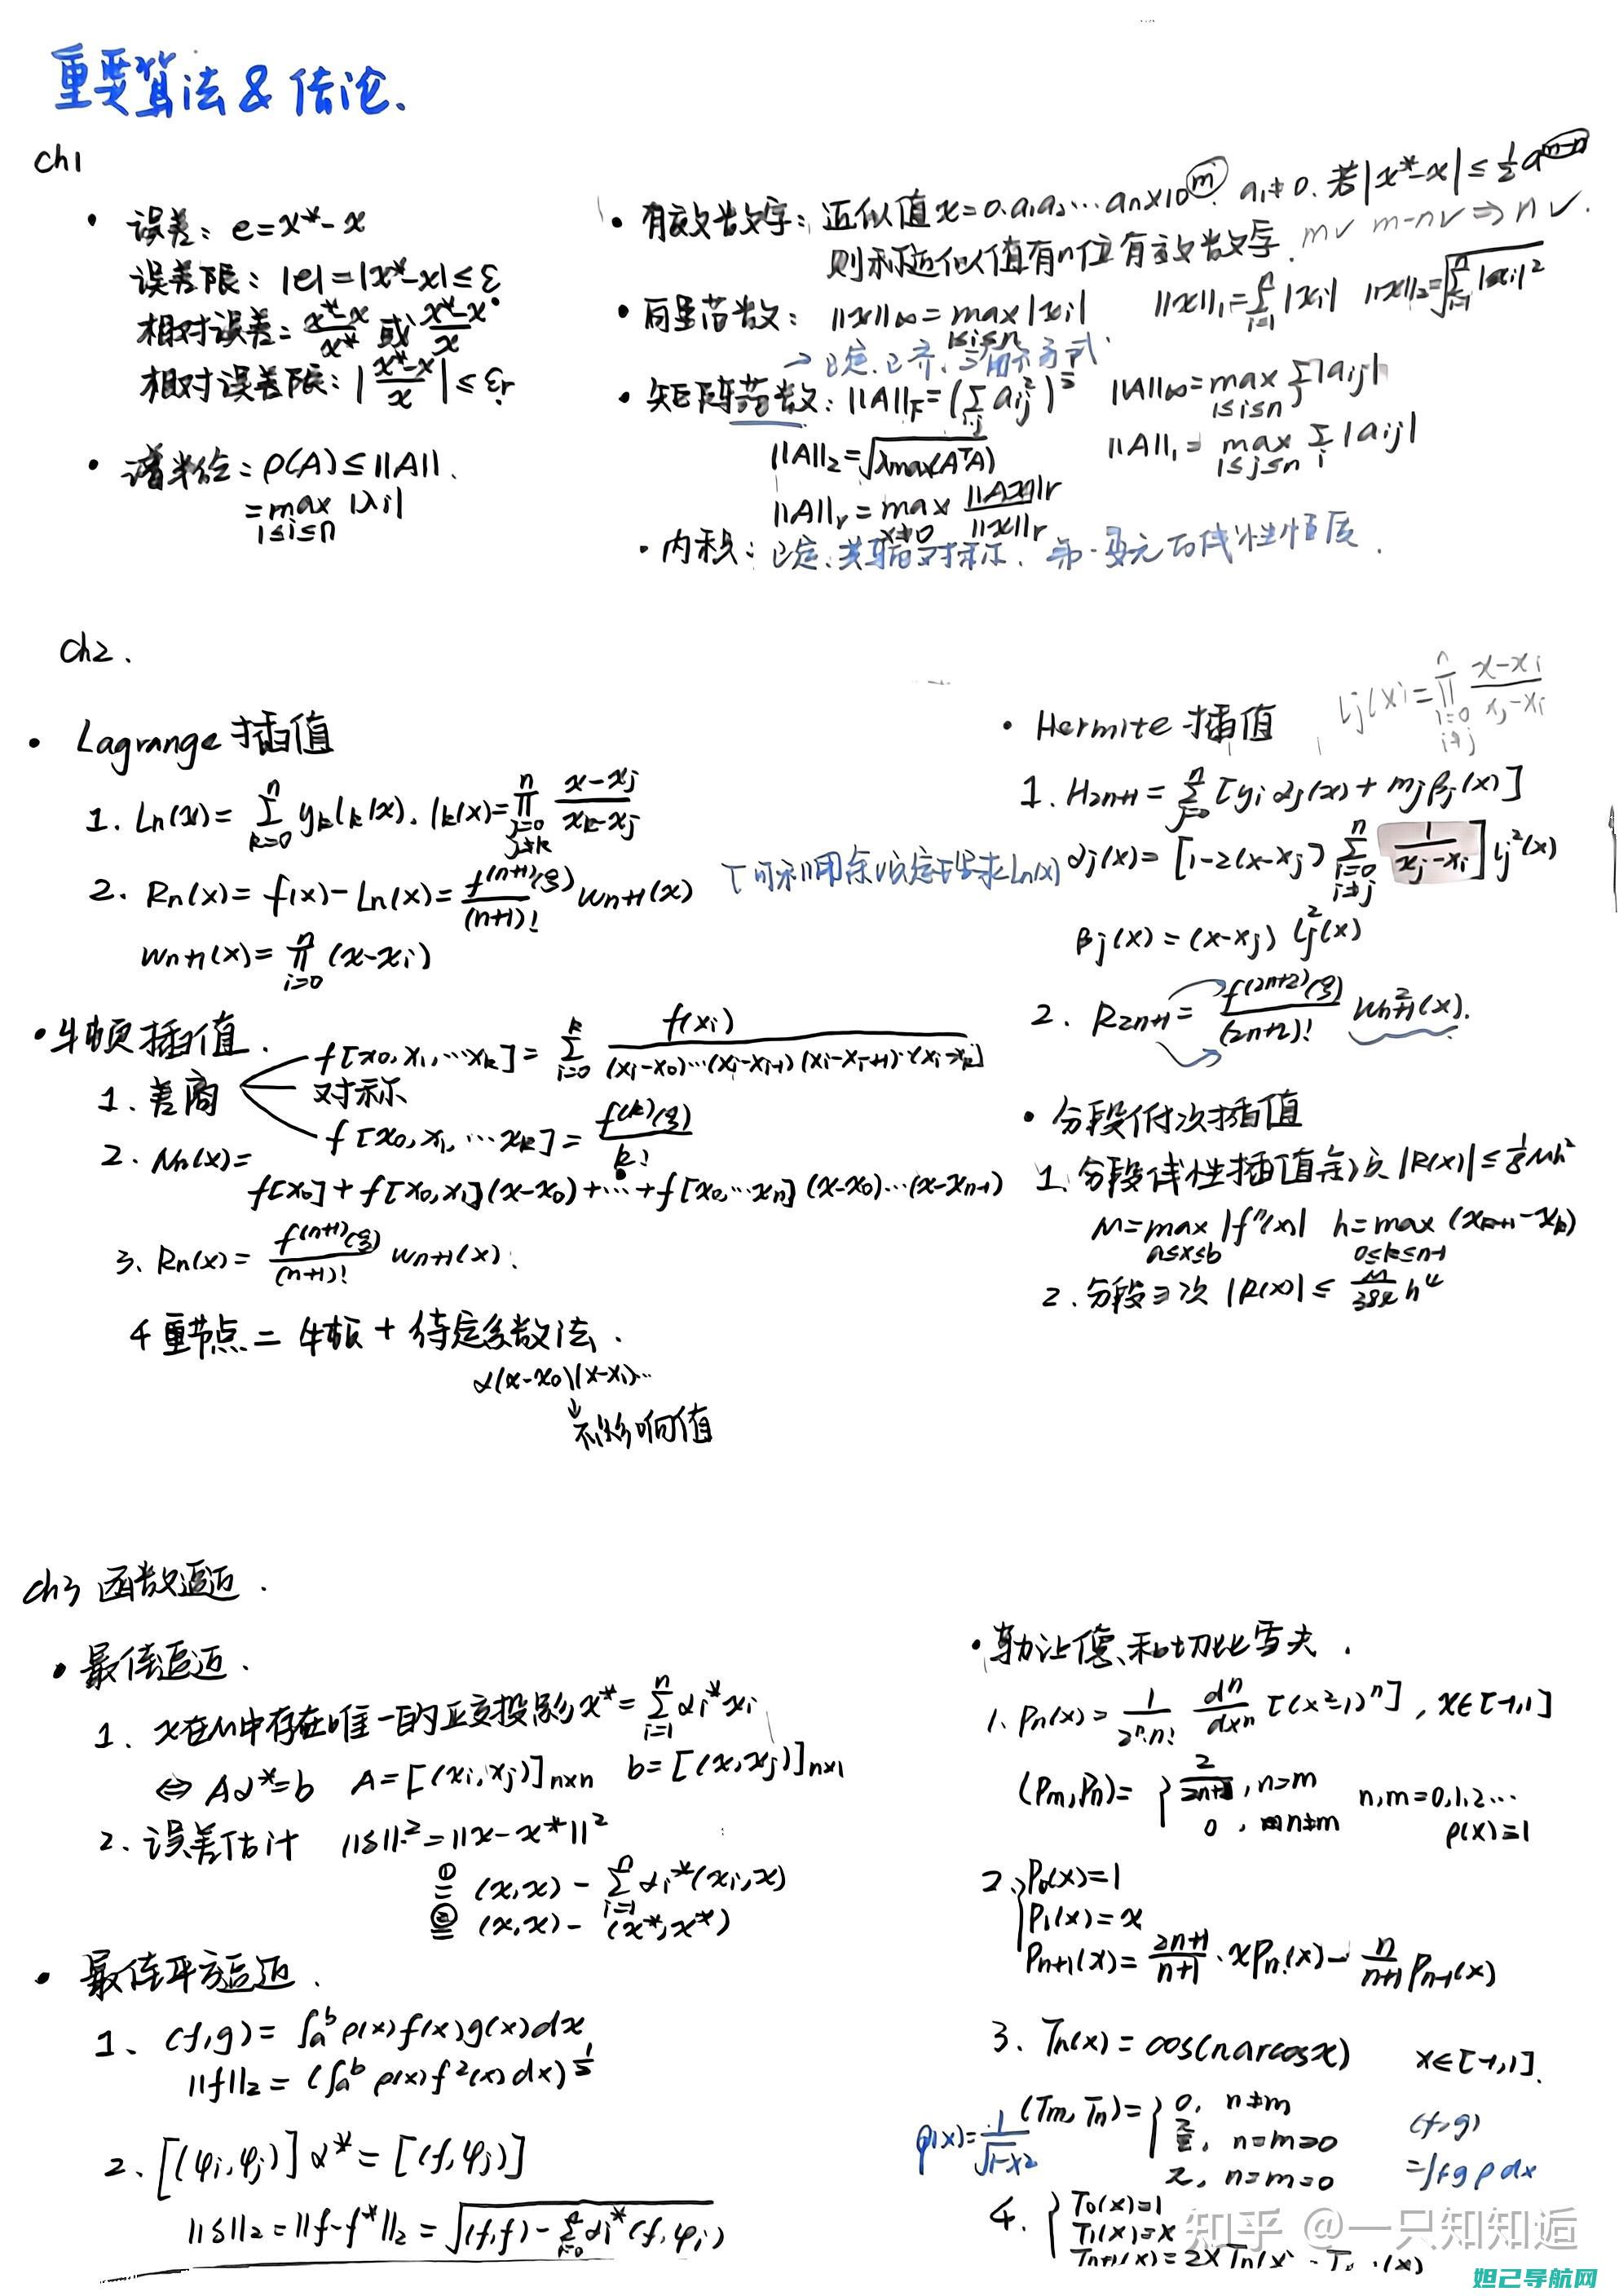 重要算法 & 结论.
ch1
• 误差: e=x*-x
误差限: |e|=|x*-x|≤ε
相对误差=(x*-x)/x* 或 (x*-x)/x
相对误差限: |(x*-x)/x|≤εr
• 谱半径: ρ(A)≤||A||.
=max |λi|
1≤i≤n
• 有效数字: 近似值 x=0.a1a2…an×10^m. a1≠0. 若|x*-x|≤½a^(m-n)
则称近似值有n位有效数字. m✓ m-n✓ ⇒ n✓.
• 向量范数: ||x||∞=max|xi| ||x||1=∑|xi| ||x||2=√(∑|xi|²)
1≤i≤n
→ 正定.正齐.三角不等式.
• 矩阵范数: ||A||F=(∑aij²)^½ ||A||∞=max ∑|aij|
||A||2=√(λmax(AᵀA)) ||A||1=max ∑|aij|
||A||r=max ||Ax||r/||x||r
x≠0
• 内积: 正定.共轭对称. 第一变元的线性性质.
ch2.
• Lagrange 插值
1. Ln(x)=∑(k=0,n) yklk(x). lk(x)=∏(j=0,j≠k,n) (x-xj)/(xk-xj)
2. Rn(x)=f(x)-Ln(x)=f^(n+1)(ξ)/(n+1)! wn+1(x)
wn+1(x)=∏(i=0,n) (x-xi)
• 牛顿插值.
1. 差商
f[x0,x1,…xk]=∑(i=0,k) f(xi)/((xi-x0)…(xi-xi-1)(xi-xi+1)…(xi-xk))
对称
f[x0,x1,…xk]=f^(k)(ξ)/k!
2. Nn(x)=
f[x0]+f[x0,x1](x-x0)+…+f[x0,…xn](x-x0)…(x-xn-1)
3. Rn(x)=f^(n+1)(ξ)/(n+1)! wn+1(x).
4 重节点 = 牛顿 + 待定系数法.
α(x-x0)(x-x1)…
↓
不影响值
• Hermite 插值 lj(x)=∏(i=0,i≠j,n) (x-xi)/(xj-xi)
1. H2n+1=∑(j=0,n)[yiαj(x)+mjβj(x)]
αj(x)=[1-2(x-xj)∑(i=0,i≠j,n) 1/(xj-xi)]lj²(x)
βj(x)=(x-xj)lj²(x)
2. R2n+1=f^(2n+2)(ξ)/(2n+2)! wn+1²(x).
• 分段低次插值
1. 分段线性插值余项|R(x)|≤⅛Mh²
M=max|f''(x)| h=max(xk+1-xk)
a≤x≤b 0≤k≤n-1
2. 分段三次 |R(x)|≤M/384 h⁴
ch3 函数逼近.
• 最佳逼近.
1. x在M中存在唯一的正交投影x*=∑(i=1,n) αi*xi
⇔ Aα*=b A=[(xi,xj)]n×n b=[(x,xj)]n×1
2. 误差估计 ||δ||²=||x-x*||²
①= (x,x)-∑(i=1,n) αi*(xi,x)
②= (x,x)-(x*,x*)
• 最佳平方逼近.
1. (f,g)=∫a^b ρ(x)f(x)g(x)dx
||f||2=(∫a^b ρ(x)f²(x)dx)^½
2. [(φi,φj)]α*=[(f,φj)]
||δ||2=||f-f*||2=√((f,f)-∑(i=0,n) αi*(f,φi))
• 勒让德和切比雪夫.
1. Pn(x)=1/(2ⁿ·n!) dⁿ/dxⁿ[(x²-1)ⁿ], x∈[-1,1]
(Pm,Pn)={2/(2n+1), n=m n,m=0,1,2…
0, n≠m ρ(x)=1
2. {P0(x)=1
P1(x)=x
Pn+1(x)=(2n+1)/(n+1)·xPn(x)-n/(n+1) Pn-1(x)
3. Tn(x)=cos(narccosx) x∈[-1,1].
ρ(x)=1/√(1-x²) (Tm,Tn)={0, n≠m
π/2, n=m≠0
π, n=m=0
(f,g)
=∫fgρdx
4. {T0(x)=1
T1(x)=x
Tn+1(x)=2xTn(x)-T (x)
知乎 @一只知知逅
妲己导航网